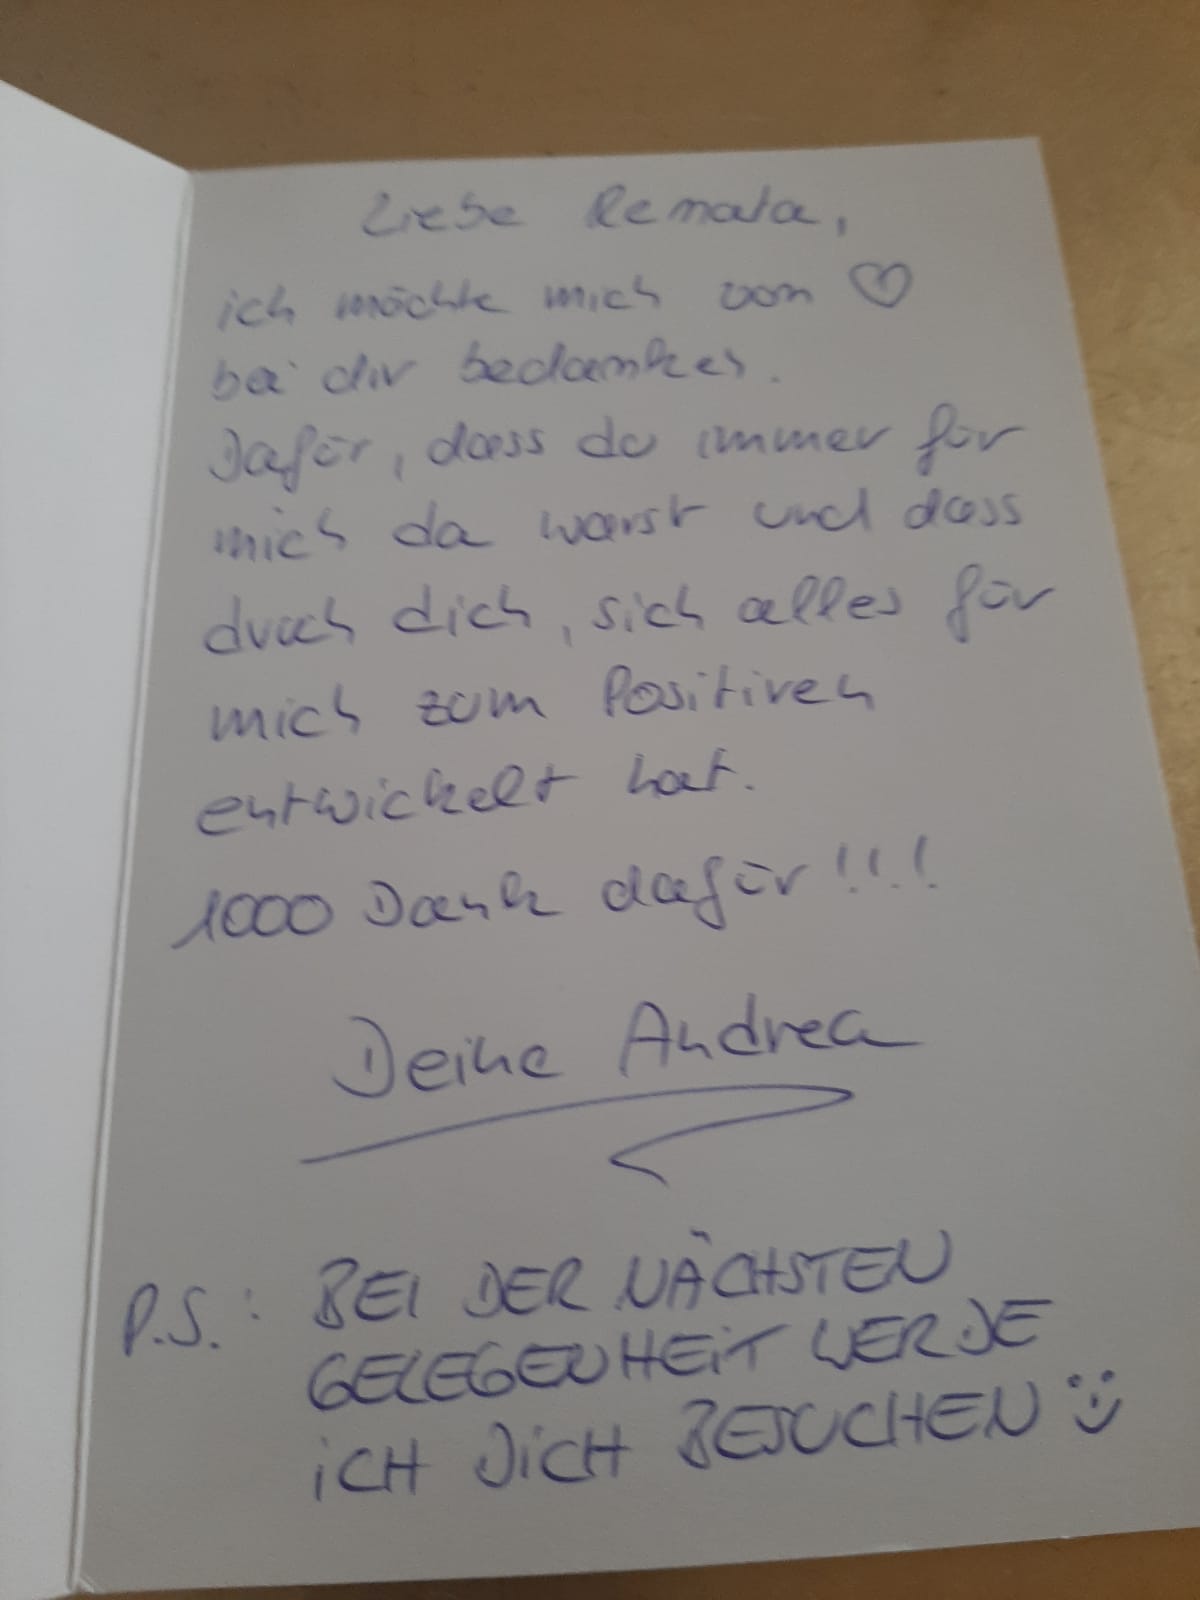 Liebe Renata,
ich möchte mich vom ♡
bei dir bedanken.
Dafür, dass du immer für
mich da warst und dass
durch dich, sich alles für
mich zum Positiven
entwickelt hat.
1000 Dank dafür!!!
Deine Andrea
P.S.: BEI DER NÄCHSTEN
GELEGENHEIT WERDE
ICH DICH BESUCHEN :)